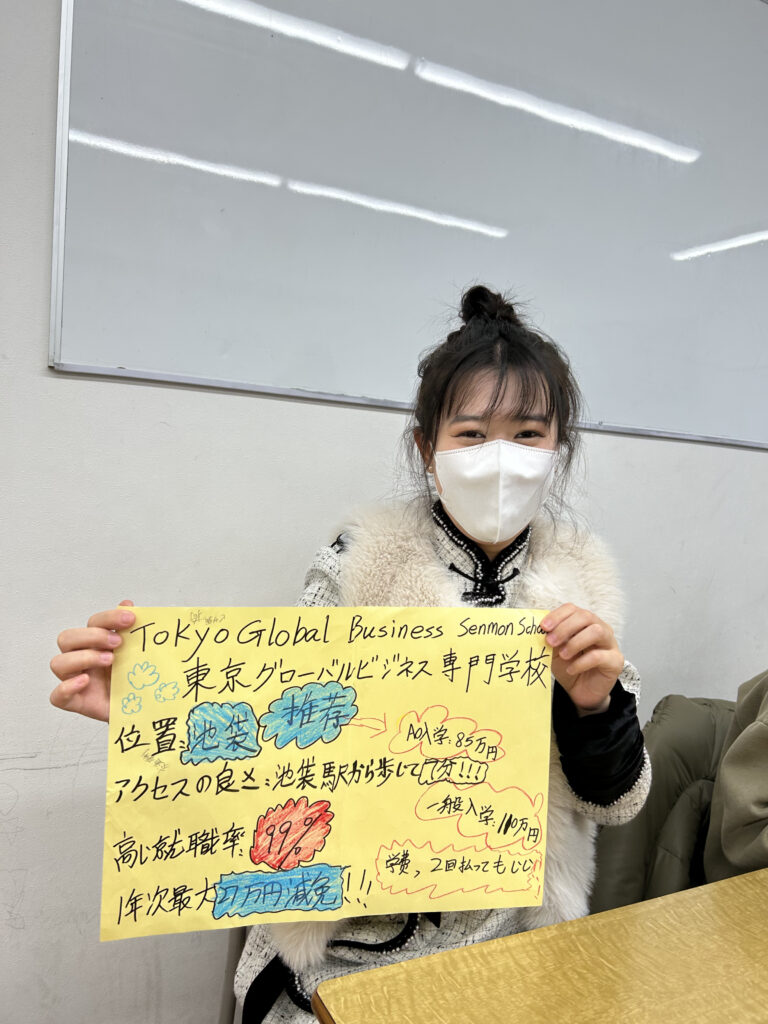 Tokyo Global Business Senmon School
東京グローバルビジネス専門学校
位置:池袋 推荐
AO入学:85万円
アクセスの良さ:池袋駅から歩して7分!!!
一般入学:110万円
高い就職率:99%
学費,2回払ってもいい
1年次最大27万円減免!!!